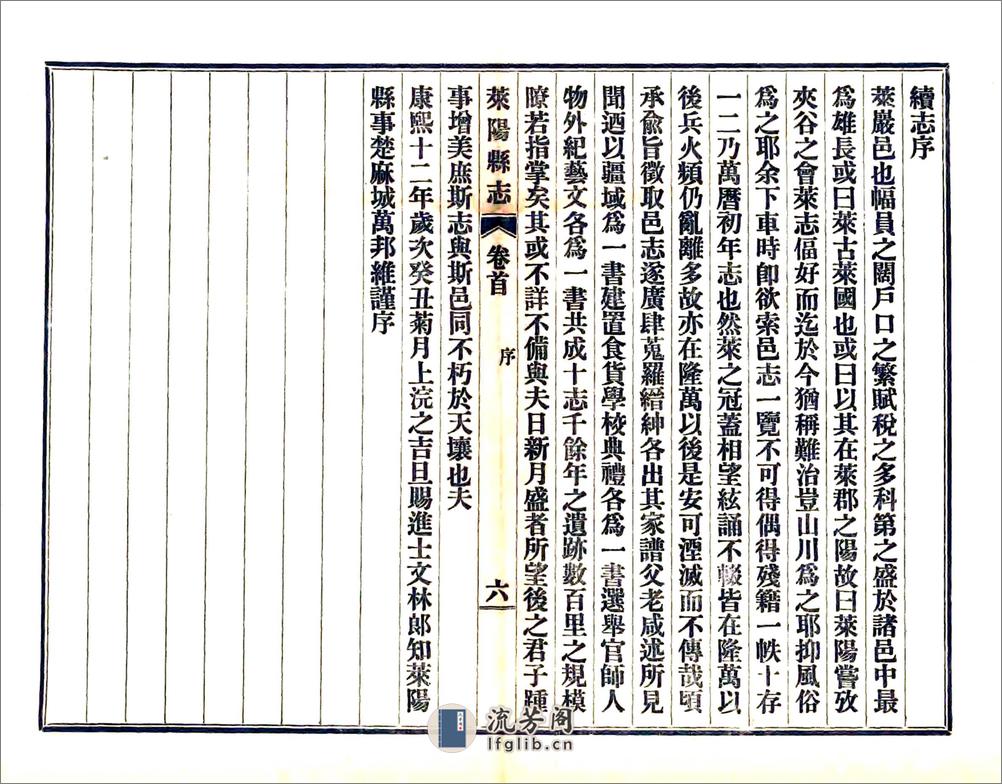 續志序
萊嚴邑也幅員之闊戶口之繁賦稅之多科第之盛於諸邑中最
為雄長或曰萊古萊國也或曰以其在萊郡之陽故曰萊陽嘗攷
夾谷之會萊志偪好而迄於今猶稱難治豈山川為之耶抑風俗
為之耶余下車時卽欲索邑志一覽不可得偶得殘籍一帙十存
一二乃萬曆初年志也然萊之冠蓋相望絃誦不輟皆在隆萬以
後兵火頻仍亂離多故亦在隆萬以後是安可湮滅而不傳哉頃
承兪旨徵取邑志遂廣肆蒐羅縉紳各出其家譜父老咸述所見
聞迺以疆域為一書建置食貨學校典禮各為一書選舉官師人
物外紀藝文各為一書共成十志千餘年之遺跡數百里之規模
瞭若指掌矣其或不詳不備與夫日新月盛者所望後之君子踵
萊陽縣志 卷首 序 六
事增美庶斯志與斯邑同不朽於天壤也夫
康熙十二年歲次癸丑菊月上浣之吉旦賜進士文林郎知萊陽
縣事楚麻城萬邦維謹序
流芳阁
lfglib.cn